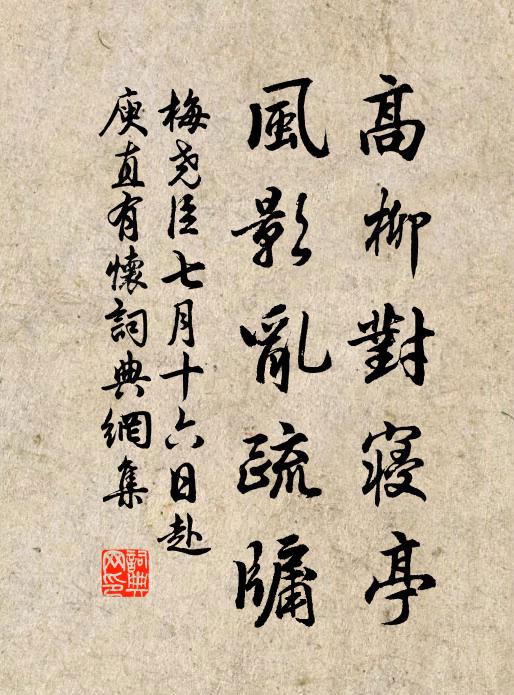 高柳對寢亭
風影亂疏牗
梅堯臣七月十六日赴
庾直有懷詞典網集
詞典网印